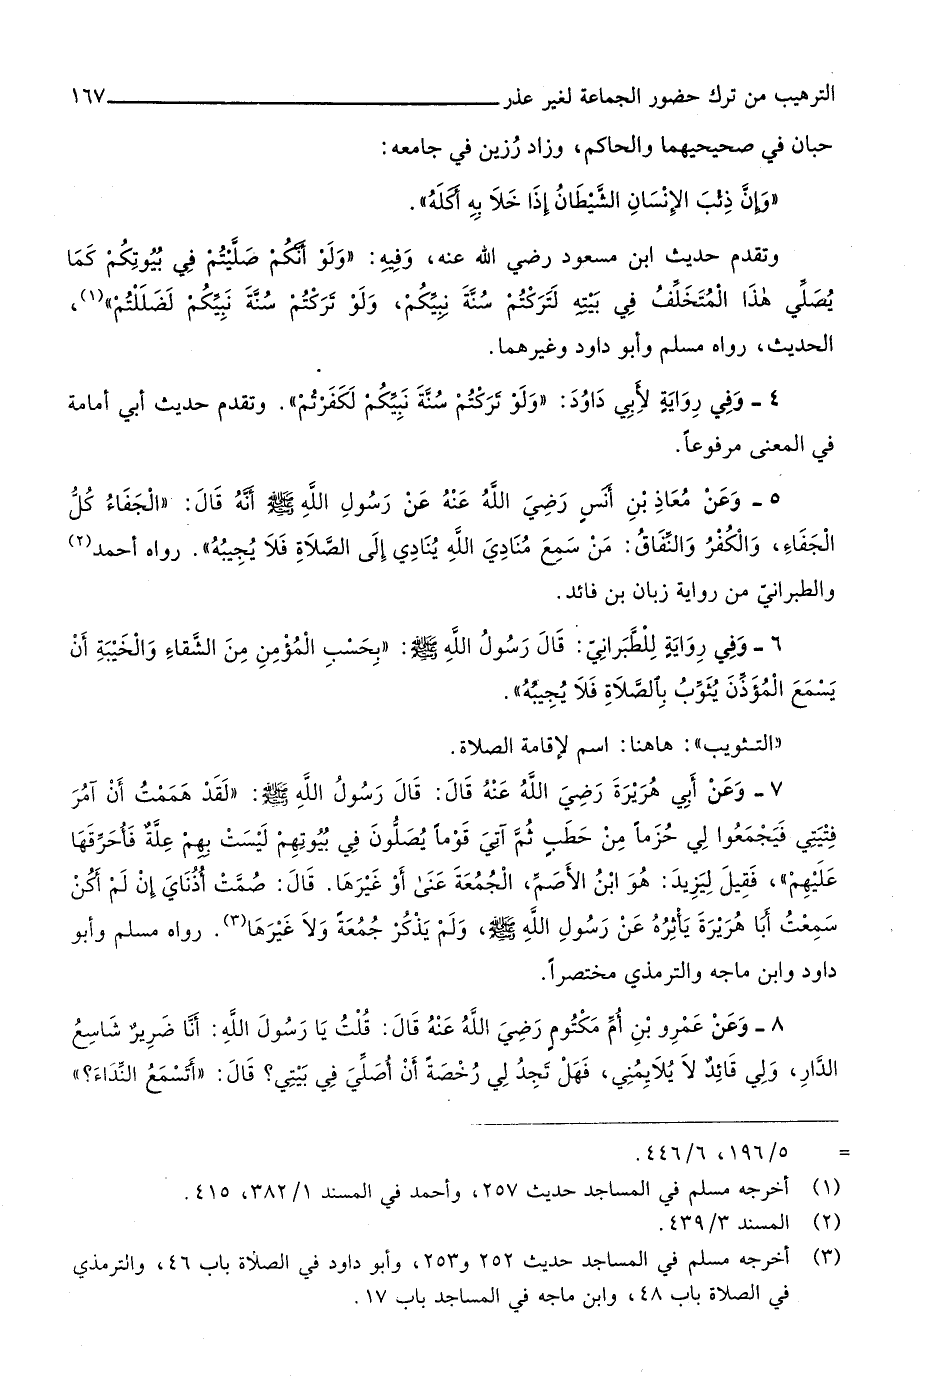 الترهيب من ترك حضور الجماعة لغير عذر ١٦٧
حبان في صحيحيهما والحاكم، وزاد رُزين في جامعه:
«وَإِنَّ ذِئْبَ الإِنْسَانِ الشَّيْطَانُ إِذَا خَلَا بِهِ أَكَلَهُ».
وتقدم حديث ابن مسعود رضي الله عنه، وَفِيهِ: «وَلَوْ أَنَّكُمْ صَلَّيْتُمْ فِي بُيُوتِكُمْ كَمَا
يُصَلِّي هٰذَا الْمُتَخَلِّفُ فِي بَيْتِهِ لَتَرَكْتُمْ سُنَّةَ نَبِيِّكُمْ، وَلَوْ تَرَكْتُمْ سُنَّةَ نَبِيِّكُمْ لَضَلَلْتُمْ»(١)،
الحديث، رواه مسلم وأبو داود وغيرهما.
٤ ـ وَفِي رِوَايَةٍ لِأَبِي دَاوُدَ: «وَلَوْ تَرَكْتُمْ سُنَّةَ نَبِيِّكُمْ لَكَفَرْتُمْ». وتقدم حديث أبي أمامة
في المعنى مرفوعاً.
٥ ـ وَعَنْ مُعَاذِ بْنِ أَنَسٍ رَضِيَ اللَّهُ عَنْهُ عَنْ رَسُولِ اللَّهِ ﷺ أَنَّهُ قَالَ: «الْجَفَاءُ كُلُّ
الْجَفَاءِ، وَالْكُفْرُ وَالنِّفَاقُ: مَنْ سَمِعَ مُنَادِيَ اللَّهِ يُنَادِي إِلَى الصَّلَاةِ فَلَا يُجِيبُهُ». رواه أحمد(٢)
والطبرانيّ من رواية زبان بن فائد.
٦ ـ وَفِي رِوَايَةٍ لِلْطَّبَرانِيّ: قَالَ رَسُولُ اللَّهِ ﷺ: «بِحَسْبِ الْمُؤْمِنِ مِنَ الشَّقاءِ وَالْخَيْبَةِ أَنْ
يَسْمَعَ الْمُؤَذِّنَ يُثَوِّبُ بِالصَّلَاةِ فَلَا يُجِيبُهُ».
«التـثويب»: هاهنا: اسم لإقامة الصلاة.
٧ ـ وَعَنْ أَبِي هُرَيْرَةَ رَضِيَ اللَّهُ عَنْهُ قَالَ: قَالَ رَسُولُ اللَّهِ ﷺ: «لَقَدْ هَمَمْتُ أَنْ آمُرَ
فِتْيَتِي فَيَجْمَعُوا لِي حُزَماً مِنْ حَطَبٍ ثُمَّ آتِيَ قَوْماً يُصَلُّونَ فِي بُيُوتِهِمْ لَيْسَتْ بِهِمْ عِلَّةٌ فَأُحَرِّقَهَا
عَلَيْهِمْ»، فَقِيلَ لِيَزِيدَ: هُوَ ابْنُ الأَصَمِّ، الْجُمُعَةَ عَنَىٰ أَوْ غَيْرَهَا. قَالَ: صُمَّتْ أُذُنَايَ إِنْ لَمْ أَكُنْ
سَمِعْتُ أَبَا هُرَيْرَةَ يَأْثِرُهُ عَنْ رَسُولِ اللَّهِ ﷺ، وَلَمْ يَذْكُرْ جُمُعَةً وَلَا غَيْرَهَا(٣). رواه مسلم وأبو
داود وابن ماجه والترمذي مختصراً.
٨ ـ وَعَنْ عَمْرِو بْنِ أُمِّ مَكْتُومٍ رَضِيَ اللَّهُ عَنْهُ قَالَ: قُلْتُ يَا رَسُولَ اللَّهِ: أَنَا ضَرِيرٌ شَاسِعُ
الدَّارِ، وَلِي قَائِدٌ لَا يُلَايِمُنِي، فَهَلْ تَجِدُ لِي رُخْصَةً أَنْ أُصَلِّيَ فِي بَيْتِي؟ قَالَ: «أَتَسْمَعُ النِّدَاءَ؟»
= ١٩٦/٥، ٤٤٦/٦.
(١) أخرجه مسلم في المساجد حديث ٢٥٧، وأحمد في المسند ٣٨٢/١، ٤١٥.
(٢) المسند ٤٣٩/٣.
(٣) أخرجه مسلم في المساجد حديث ٢٥٢ و٢٥٣، وأبو داود في الصلاة باب ٤٦، والترمذي
في الصلاة باب ٤٨، وابن ماجه في المساجد باب ١٧.